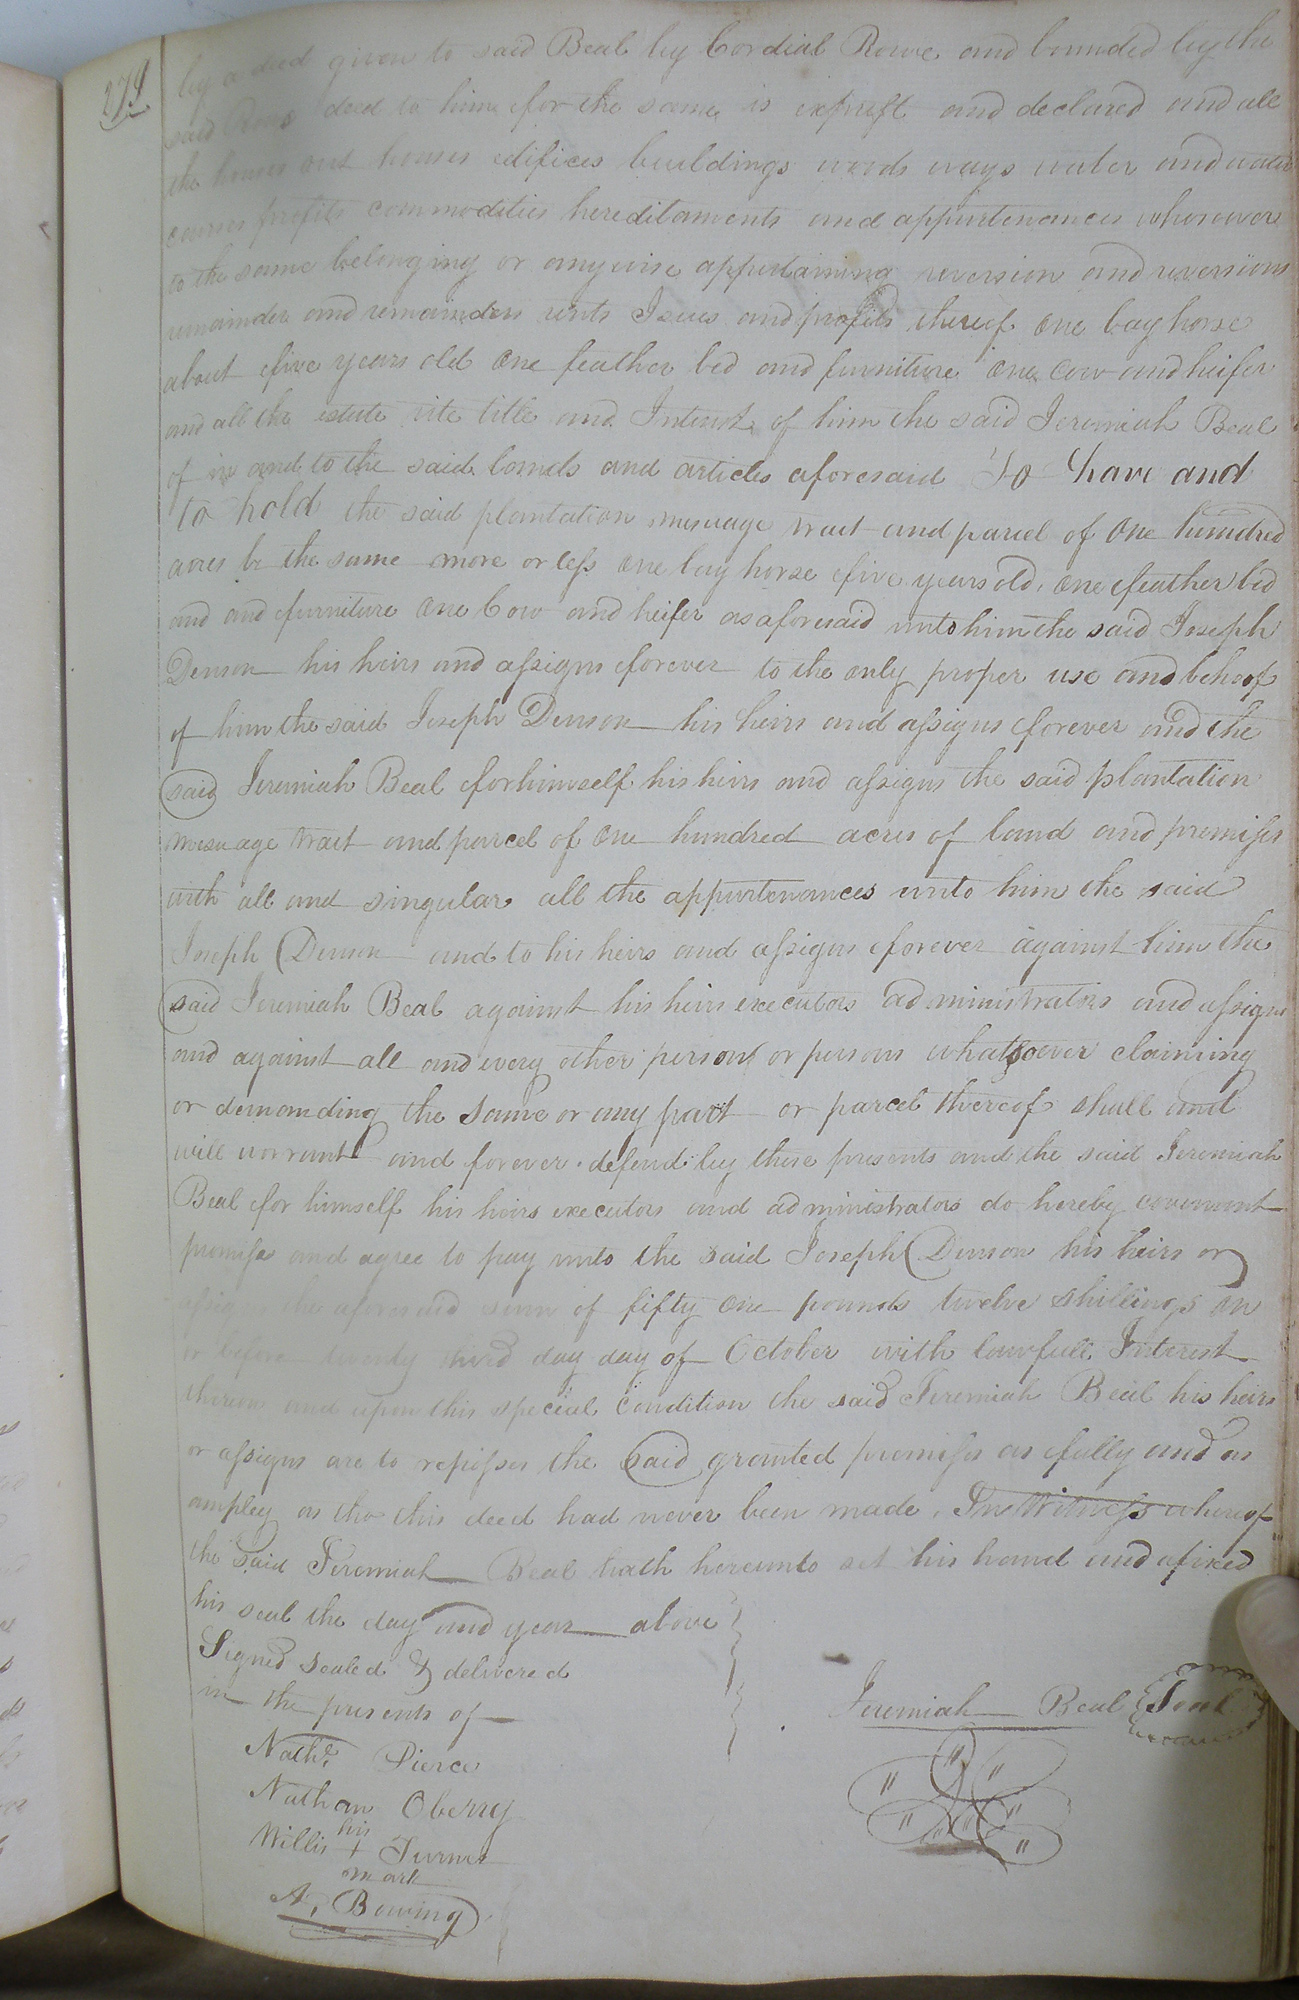 279
by a deed given to said Beal by Cordial Rowe and bounded by the
said Rows deed to him for the same is exprest and declared and all
the houses out houses edifices buildings woods ways water and water
courses profits commodities hereditaments and appurtenances whosoever
to the same belonging or anywise appertaining reversion and reversions
remainder and remainders rents Issues and profits thereof one bay horse
about five years old one feather bed and furniture one cow and heifer
and all the estate rite title and Interest of him the said Jeremiah Beal
of in and to the said lands and articles aforesaid To have and
to hold the said plantation mesuage tract and parcel of one hundred
acres be the same more or less one bay horse five years old, one feather bed
and and furniture one Cow and heifer as aforesaid unto him the said Joseph
Denson his heirs and assigns forever to the only proper use and behoof
of him the said Joseph Denson his heirs and assigns forever and the
said Jeremiah Beal for himself his heirs and assigns the said plantation
mesuage tract and parcel of one hundred acres of land and premises
with all and singular all the appurtenances unto him the said
Joseph Denson and to his heirs and assigns forever against him the
said Jeremiah Beal against his heirs executors administrators and assigns
and against all and every other person or persons whatsoever claiming
or demanding the same or any part or parcel thereof shall and
will warrant and forever defend by these presents and the said Jeremiah
Beal for himself his heirs executors and administrators do hereby covenant
promise and agree to pay unto the said Joseph Denson his heirs or
assig the aforesaid sum of fifty one pounds twelve shillings on
or before twenty third day day of October with lawfull Interest
thereon and upon this special condition the said Jeremiah Beal his heirs
or assigns are to reposses the said granted premises as fully and as
ampley as tho this deed had never been made. In Witness whereof
the said Jeremiah Beal hath hereunto set his hand and afixed
his seal the day and year above
Signed sealed & delivered
in the presents of
Jeremiah Beal Seal
Nathl. Pierce
Nathan Oberry
his
Willis + Turner
mark
A. Bowing